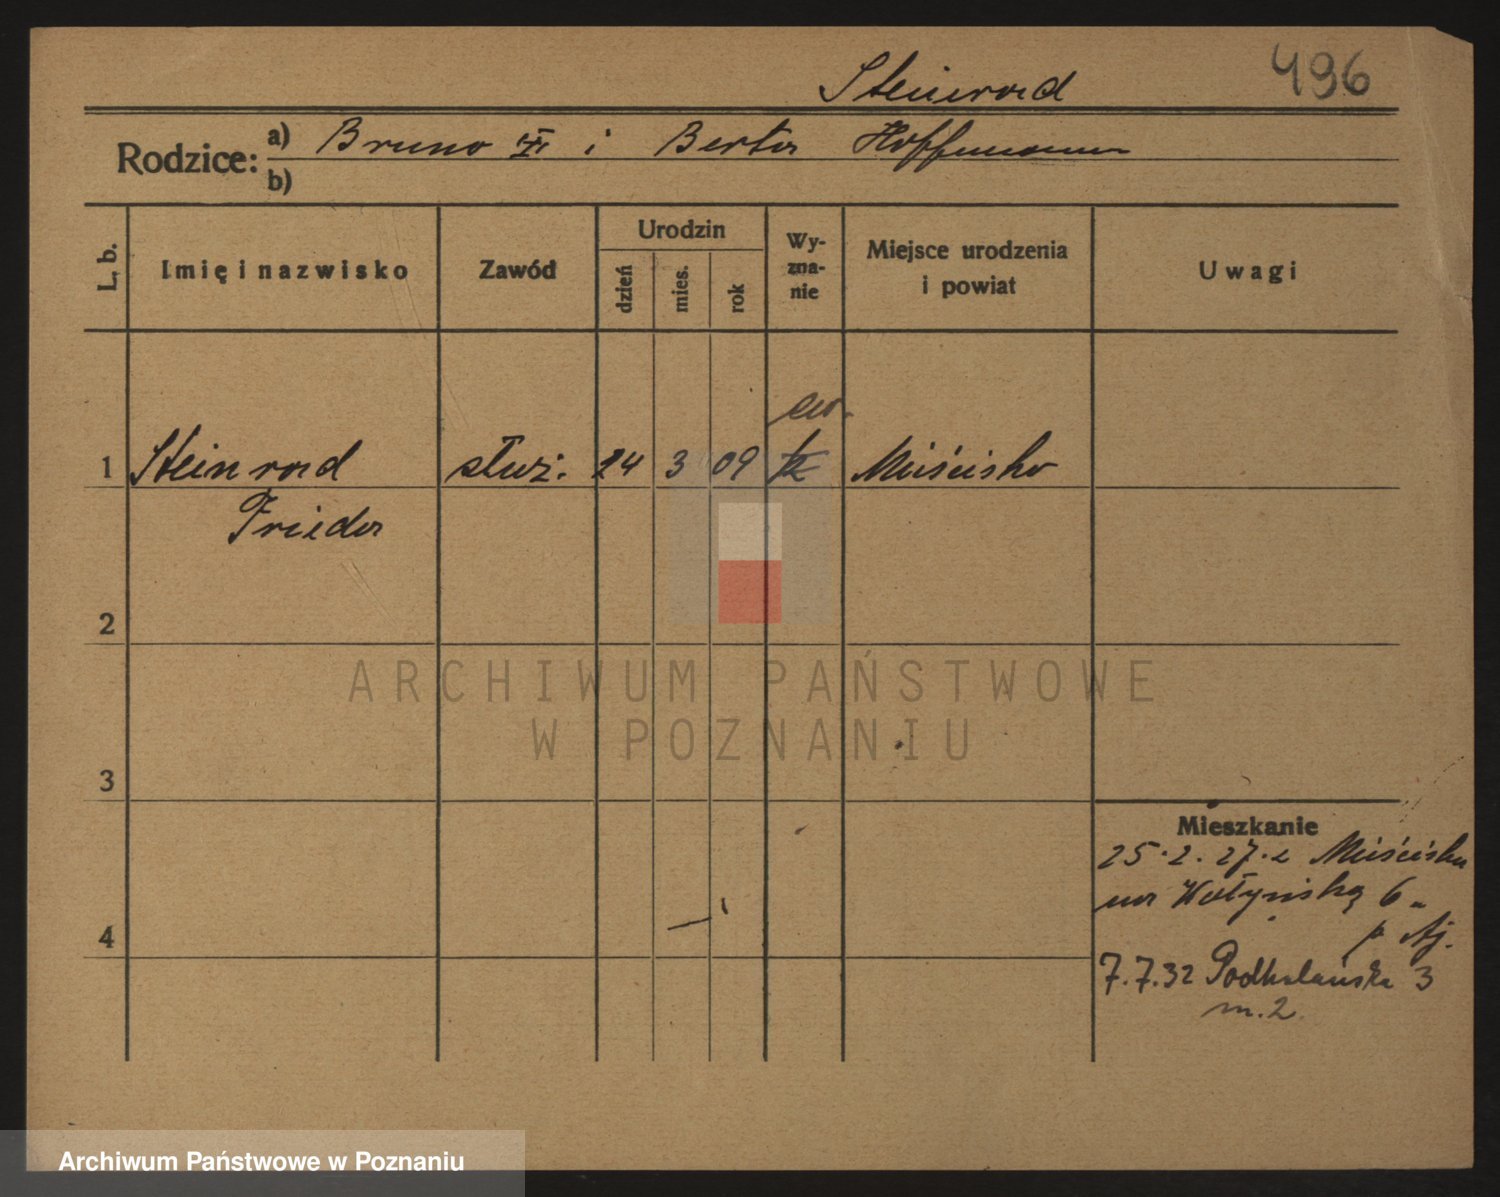 496
Steinrord
Rodzice: a) Bruno i Berta Hoffmann
b)
L. b. Imię i nazwisko Zawód Urodzin dzień mies. rok Wy-zna-nie Miejsce urodzenia i powiat Uwagi
ew.
1 Steinrord służ. 24 3 09 k Mieścisko
Frieda
2
3
4
Mieszkanie
25.2.27. z Mieściska
na Wołyńską 6
7.7.32 Podhalańska 3
m.2.
ARCHIWUM PAŃSTWOWE
W POZNANIU
Archiwum Państwowe w Poznaniu